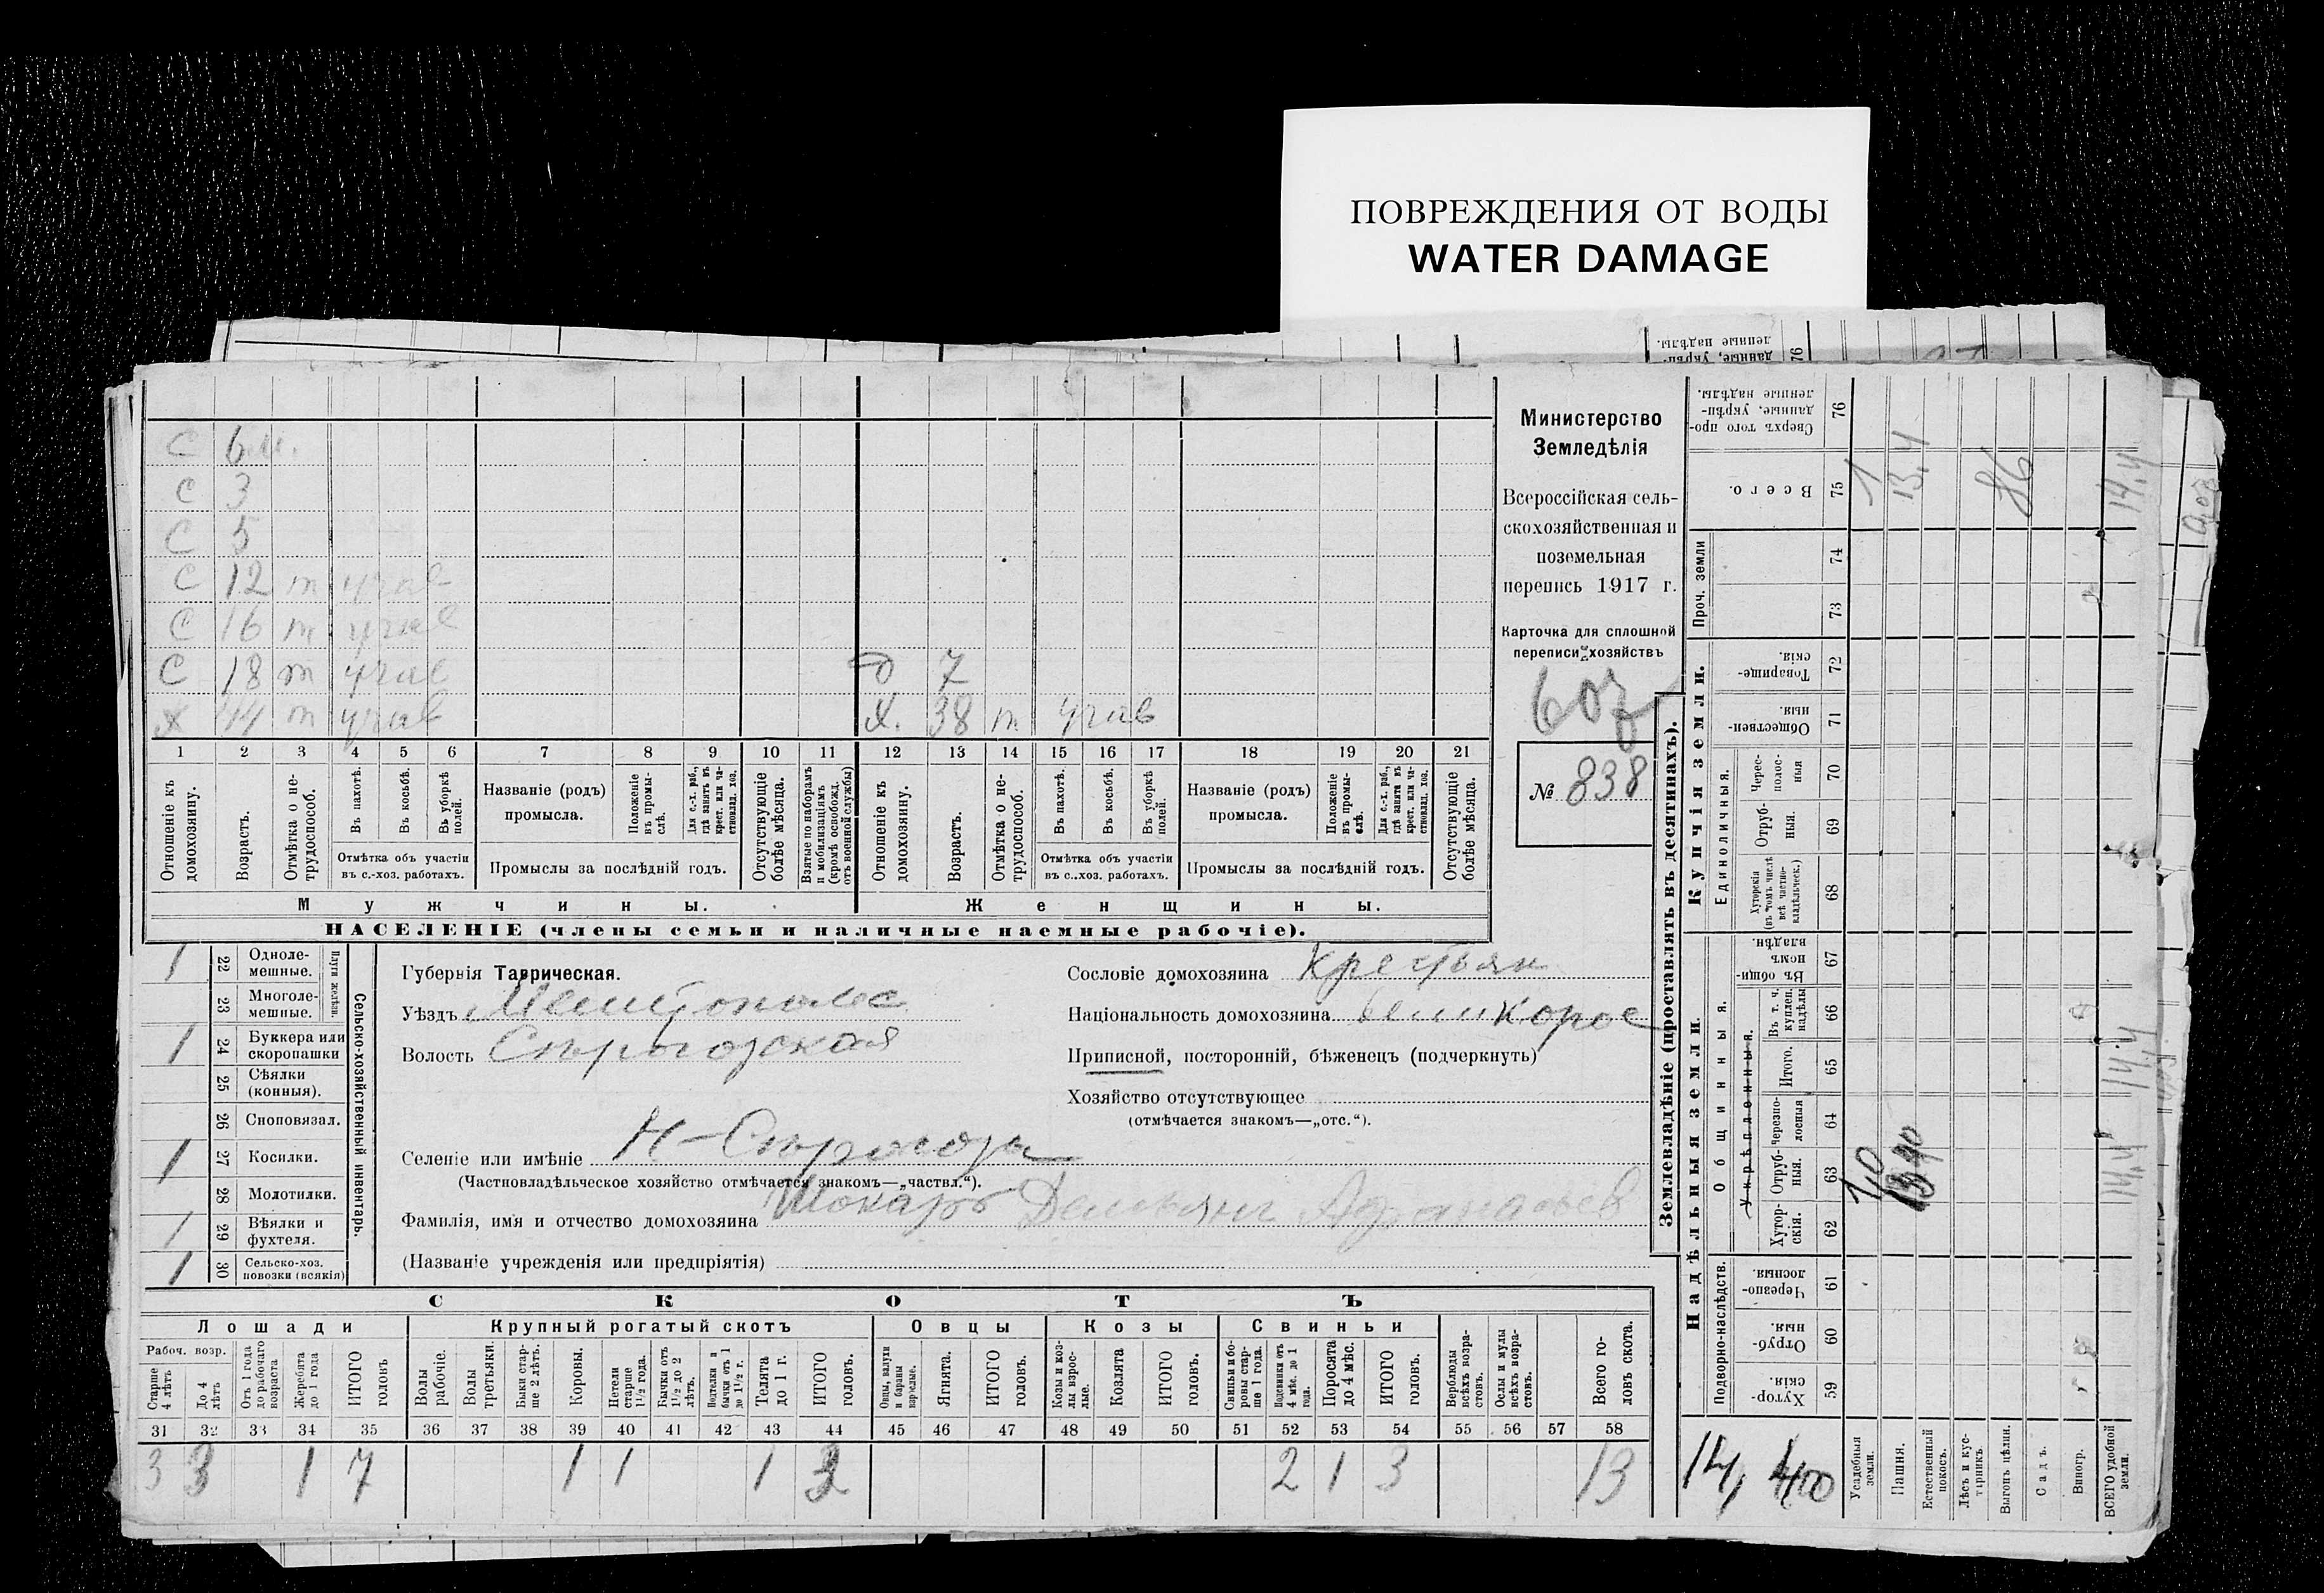 ПОВРЕЖДЕНИЯ ОТ ВОДЫ
WATER DAMAGE
С 6 м.
С 3
С 5
С 12 т учав
С 16 т учав
С 18 т учав д 7
х 44 т учав х. 38 т учав
1 2 3 4 5 6 7 8 9 10 11 12 13 14 15 16 17 18 19 20 21
Отношеніе къ домохозяину.
Возрастъ.
Отмѣтка о не-
трудоспособ.
Въ пахотѣ.
Въ косьбѣ.
Въ уборкѣ
полей.
Отмѣтка объ участіи
въ с.-хоз. работахъ.
Названіе (родъ)
промысла.
Положеніе
въ промы-
слѣ.
Для с.-х. раб.,
гдѣ занятъ въ
крест. или ча-
стновлад. хоз.
Промыслы за послѣдній годъ.
Отсутствующіе
болѣе мѣсяца.
Взятые по наборамъ
и мобилизаціямъ
(кромѣ освобожд.
отъ военной службы)
Отношеніе къ
домохозяину.
Возрастъ.
Отмѣтка о не-
трудоспособ.
Въ пахотѣ.
Въ косьбѣ.
Въ уборкѣ
полей.
Отмѣтка объ участіи
въ с..хоз. работахъ.
Названіе (родъ)
промысла.
Положеніе
въ промы-
слѣ.
Для с.-х. раб.,
гдѣ занята въ
крест. или ча-
стновлад. хоз.
Промыслы за послѣдній годъ.
Отсутствующіе
болѣе мѣсяца.
Мужчины. Женщины.
НАСЕЛЕНІЕ (члены семьи и наличные наемные рабочіе).
Министерство
Земледѣлія
Всероссійская сель-
скохозяйственная и
поземельная
перепись 1917 г.
Карточка для сплошной
переписи хозяйствъ
607
№ 838
1 22 Одноле-
мешные.
Плуги желѣзн.
23 Многоле-
мешные.
1 24 Буккера или
скоропашки
25 Сѣялки
(конныя).
26 Сноповязал.
1 27 Косилки.
28 Молотилки.
1 29 Вѣялки и
фухтеля.
1 30 Сельско-хоз.
повозки (всякія)
Сельско-хозяйственный инвентарь.
Губернія Таврическая.
Уѣздъ Мелитополс
Волость Сѣрогозская
Селеніе или имѣніе Н-Сѣрогозы
(Частновладѣльческое хозяйство отмѣчается знакомъ—„частвл.“).
Фамилія, имя и отчество домохозяина Шокаръ Демьянъ Афанасьев
(Названіе учрежденія или предпріятія)
Сословіе домохозяина Крестьян
Національность домохозяина великорос
Приписной, посторонній, бѣженецъ (подчеркнуть)
Хозяйство отсутствующее
(отмѣчается знакомъ—„отс.“).
СКОТЪ
Лошади Крупный рогатый скотъ Овцы Козы Свиньи
Рабоч. возр.
Старше
4 лѣтъ
До 4
лѣтъ
Отъ 1 года
до рабочаго
возраста
Жеребята
до 1 года
ИТОГО
головъ
Волы
рабочіе.
Волы
третьяки.
Быки стар-
ше 2 лѣтъ.
Коровы.
Нетели
старше
1½ года.
Бычки отъ
1½ до 2
лѣтъ.
Подтелки и
бычки отъ 1
до 1½ г.
Телята
до 1 г.
ИТОГО
головъ.
Овцы, валухи
и бараны
взрослые.
Ягнята.
ИТОГО
головъ.
Козы и коз-
лы взрос-
лые.
Козлята
ИТОГО
головъ.
Свиньи и бо-
ровы стар-
ше 1 года.
Подсвинки отъ
4 мѣс. до 1
года.
Поросята
до 4 мѣс.
ИТОГО
головъ.
Верблюды
всѣхъ возра-
стовъ.
Ослы и мулы
всѣхъ возра-
стовъ.
Всего го-
ловъ скота.
31 32 33 34 35 36 37 38 39 40 41 42 43 44 45 46 47 48 49 50 51 52 53 54 55 56 57 58
3 3 1 7 1 1 1 3 2 1 3 13
Землевладѣніе (проставлять въ десятинахъ).
Надѣльныя земли. Купчія земли.
Подворно-наслѣдств.
Общинныя.
Укрѣпленныя.
Единоличныя.
Проч. земли
Хутор-
скія. 59
Отруб-
ныя. 60
Черезпо-
лосныя. 61
Хутор-
скія. 62
Отруб-
ныя. 63
Черезпо-
лосныя 64
Итого. 65
Въ т. ч.
куплен.
надѣлы 66
Въ общин-
номъ
владѣн. 67
Хуторскія
(въ томъ числѣ
всѣ частно-
владѣльческ.) 68
Отруб-
ныя. 69
Черес-
полос-
ныя 70
Обществен-
ныя. 71
Товарище-
скія. 72
73
74
Всего. 75
Сверхъ того про-
данные, укрѣп-
ленные надѣлы. 76
14,400
Усадебныя
земли.
Пашня.
Естественный
покосъ.
Лѣсъ и кус-
тарникъ.
Выгонъ цѣлин.
Садъ.
Виногр.
ВСЕГО удобной
земли.
1,0
1
13,4
86
14,4
14,4
14,4